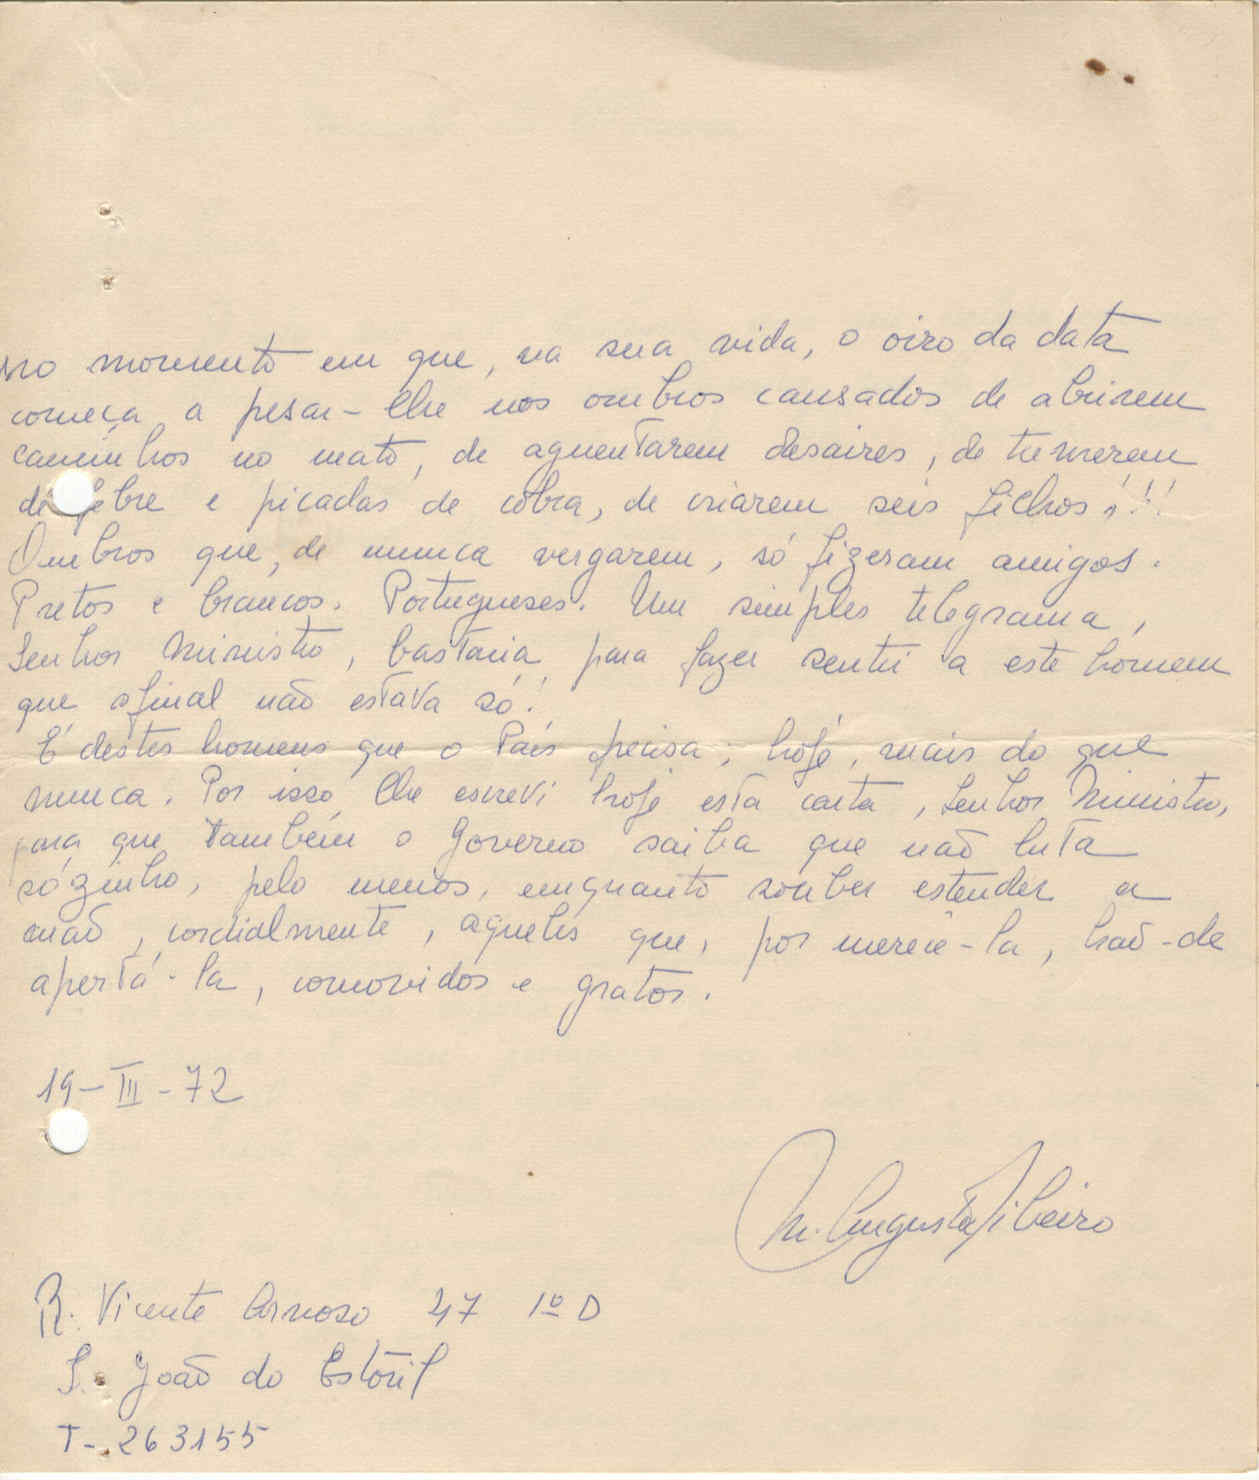 no momento em que, na sua vida, o oiro da data
começa a pesar-lhe nos ombros cansados de abrirem
caminhos no mato, de aguentarem desaires, de tremerem
de febre e picadas de cobra, de criarem seis filhos!!!
Ombros que, de nunca vergarem, só fizeram amigos.
Pretos e brancos. Portugueses. Um simples telegrama,
Senhor Ministro, bastaria para fazer sentir a este homem
que afinal não estava só!
É destes homens que o País precisa; hoje, mais do que
nunca. Por isso lhe escrevi hoje esta carta, Senhor Ministro,
para que também o Governo saiba que não luta
sózinho, pelo menos, emquanto souber estender a
mão, cordialmente, aqueles que, por merecê-la, hão-de
apertá-la, comovidos e gratos.
19-III-72
M. Augusta Ribeiro
R. Vicente Arnoso 47 1º D
S. João do Estoril
T- 263155